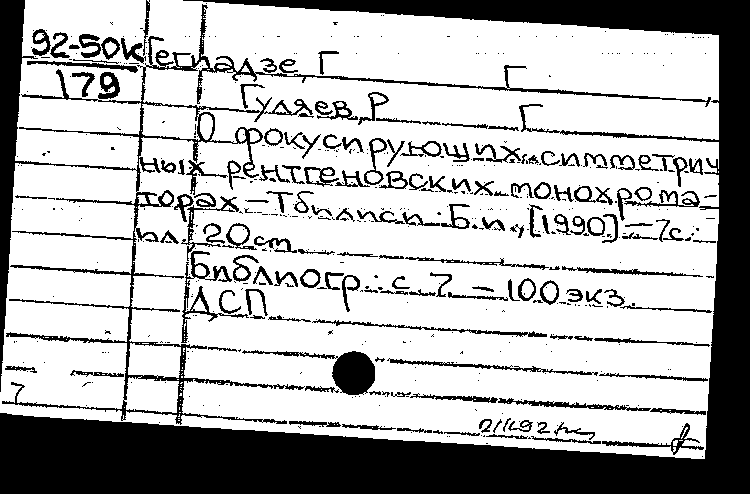 92-50К Гегиадзе, Г Г
179
Гуляев, Р Г
О фокусирующих симметрич
ных рентгеновских монохрома-
торах - Тбилиси: Б.и., [1990] - 7с.:
ил, 20 cm.
Библиогр.: с. 7 - 100 экз.
ДСП
7